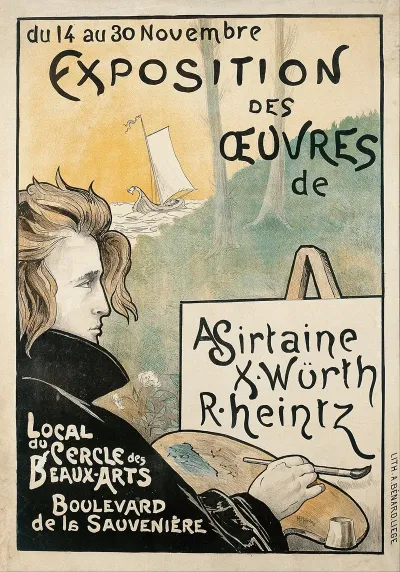 du 14 au 30 Novembre
EXPOSITION
DES
ŒUVRES
de
A Sirtaine
X. Würth
R. heintz
LOCAL
du CERCLE des
BEAUX-ARTS
BOULEVARD
de la SAUVENIÈRE
LITH. A. BENARD LIEGE.